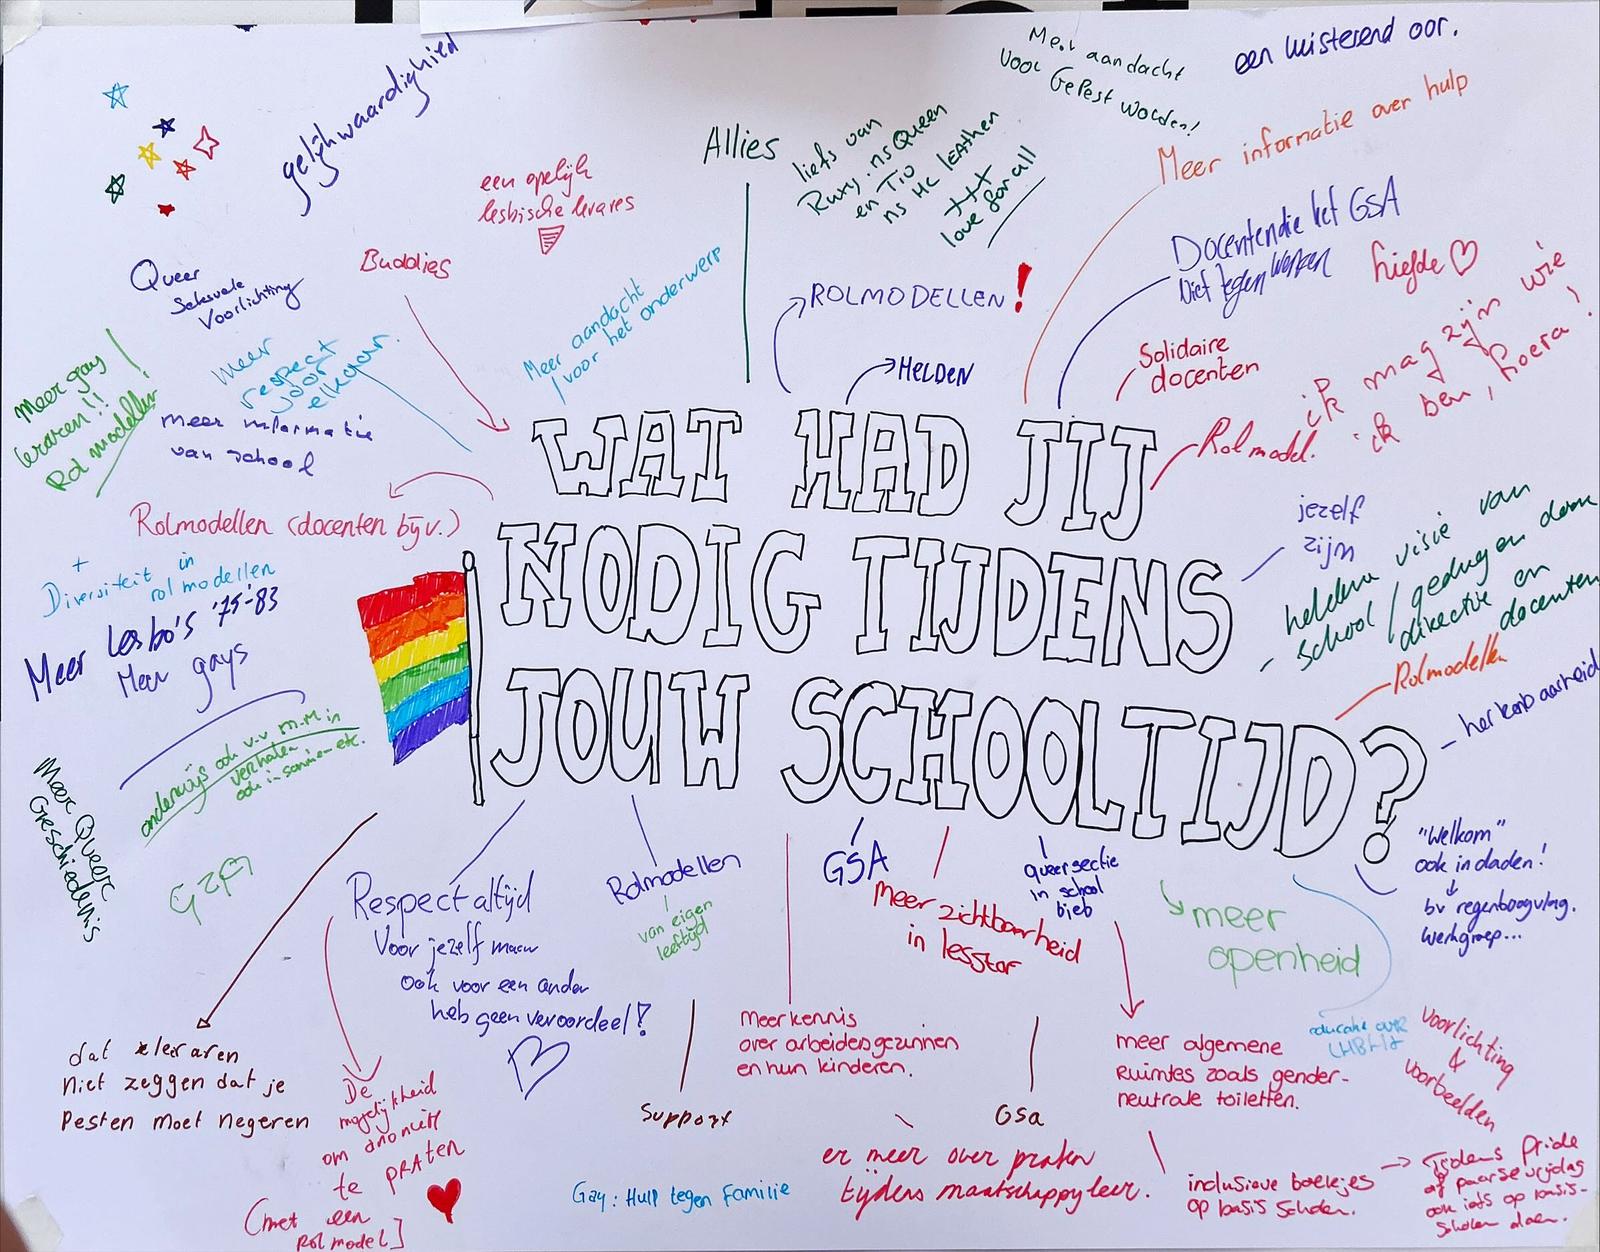 gelijkwaardigheid
een openlijk
lesbische lerares
Buddies
Queer
Seksuele
Voorlichting
meer
respect
voor
elkaar.
Meer gay
leraren!!
Rolmodellen
meer informatie
van school
Meer aandacht
voor het onderwerp
Allies
liefs van
en Tio
love for all
Meer aandacht
voor Gepest worden!
een luisterend oor.
Meer informatie over hulp
ROLMODELLEN!
HELDEN
Docenten die het GSA
Niet tegenwerken
liefde
Solidaire
docenten
Rolmodel.
ik mag zijn wie
ik ben, hoera!
WAT HAD JIJ
NODIG TIJDENS
JOUW SCHOOLTIJD?
Rolmodellen (docenten bijv.)
+
Diversiteit in
rolmodellen
Meer lesbo's '75-'83
Meer gays
onderwijs ook v.v. M.M in
verhalen
ook in sommen etc.
Meer Queer
Geschiedenis
GZA
jezelf
zijn
heldere visie van
school / gedragen door
directie en
docenten
Rolmodellen
- herkenbaarheid
"Welkom"
ook in daden!
bv regenboogvlag.
werkgroep...
dat leraren
niet zeggen dat je
Pesten moet negeren
De
mogelijkheid
om anoniem
te praten
(met een
rolmodel]
Respect altijd
Voor jezelf maar
ook voor een ander
heb geen vooroordeel!
Rolmodellen
van eigen
leeftijd
Support
Gay: Hulp tegen Familie
meer kennis
over arbeidersgezinnen
en hun kinderen.
GSA
Meer zichtbaarheid
in lesstof
queer sectie
in school
bieb
meer
openheid
Gsa
er meer over praten
tijdens maatschappijleer.
meer algemene
ruimtes zoals gender-
neutrale toiletten.
educatie over
LHBTI+
voorlichting
&
voorbeelden
inclusieve boekjes
op basis scholen.
Tijdens Pride
of paarse vrijdag
ook iets op basis-
scholen doen.